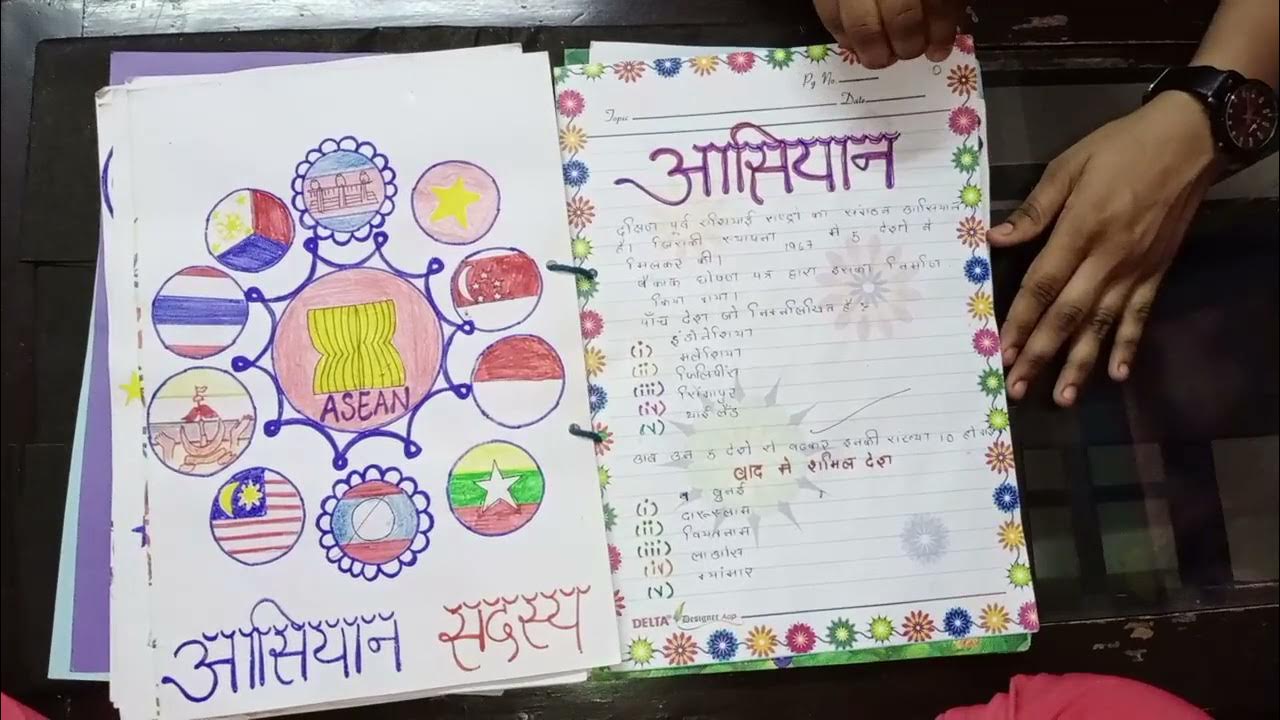 ASEAN
आसियान सदस्य
Pg No.
Date
Topic
आसियान
दक्षिण पूर्व एशियाई राष्ट्रो का संगठन आसियान
है। जिसकी स्थापना 1967 मे 5 देशो ने
मिलकर की।
बैंकाक घोषणा पत्र द्वारा इसका निर्माण
किया गया।
पाँच देश जो निम्नलिखित है :
(i) इंडोनेशिया
(ii) मलेशिया
(iii) फिलिपींस
(iv) सिंगापुर
(v) थाईलैंड
अब उन 5 देशो से बढकर इनकी संख्या 10 हो गई
बाद मे शामिल देश
(i) ब्रुनई
(ii) दारुस्लाम
(iii) वियतनाम
(iv) लाओस
(v) म्यांमार
DELTA Designer